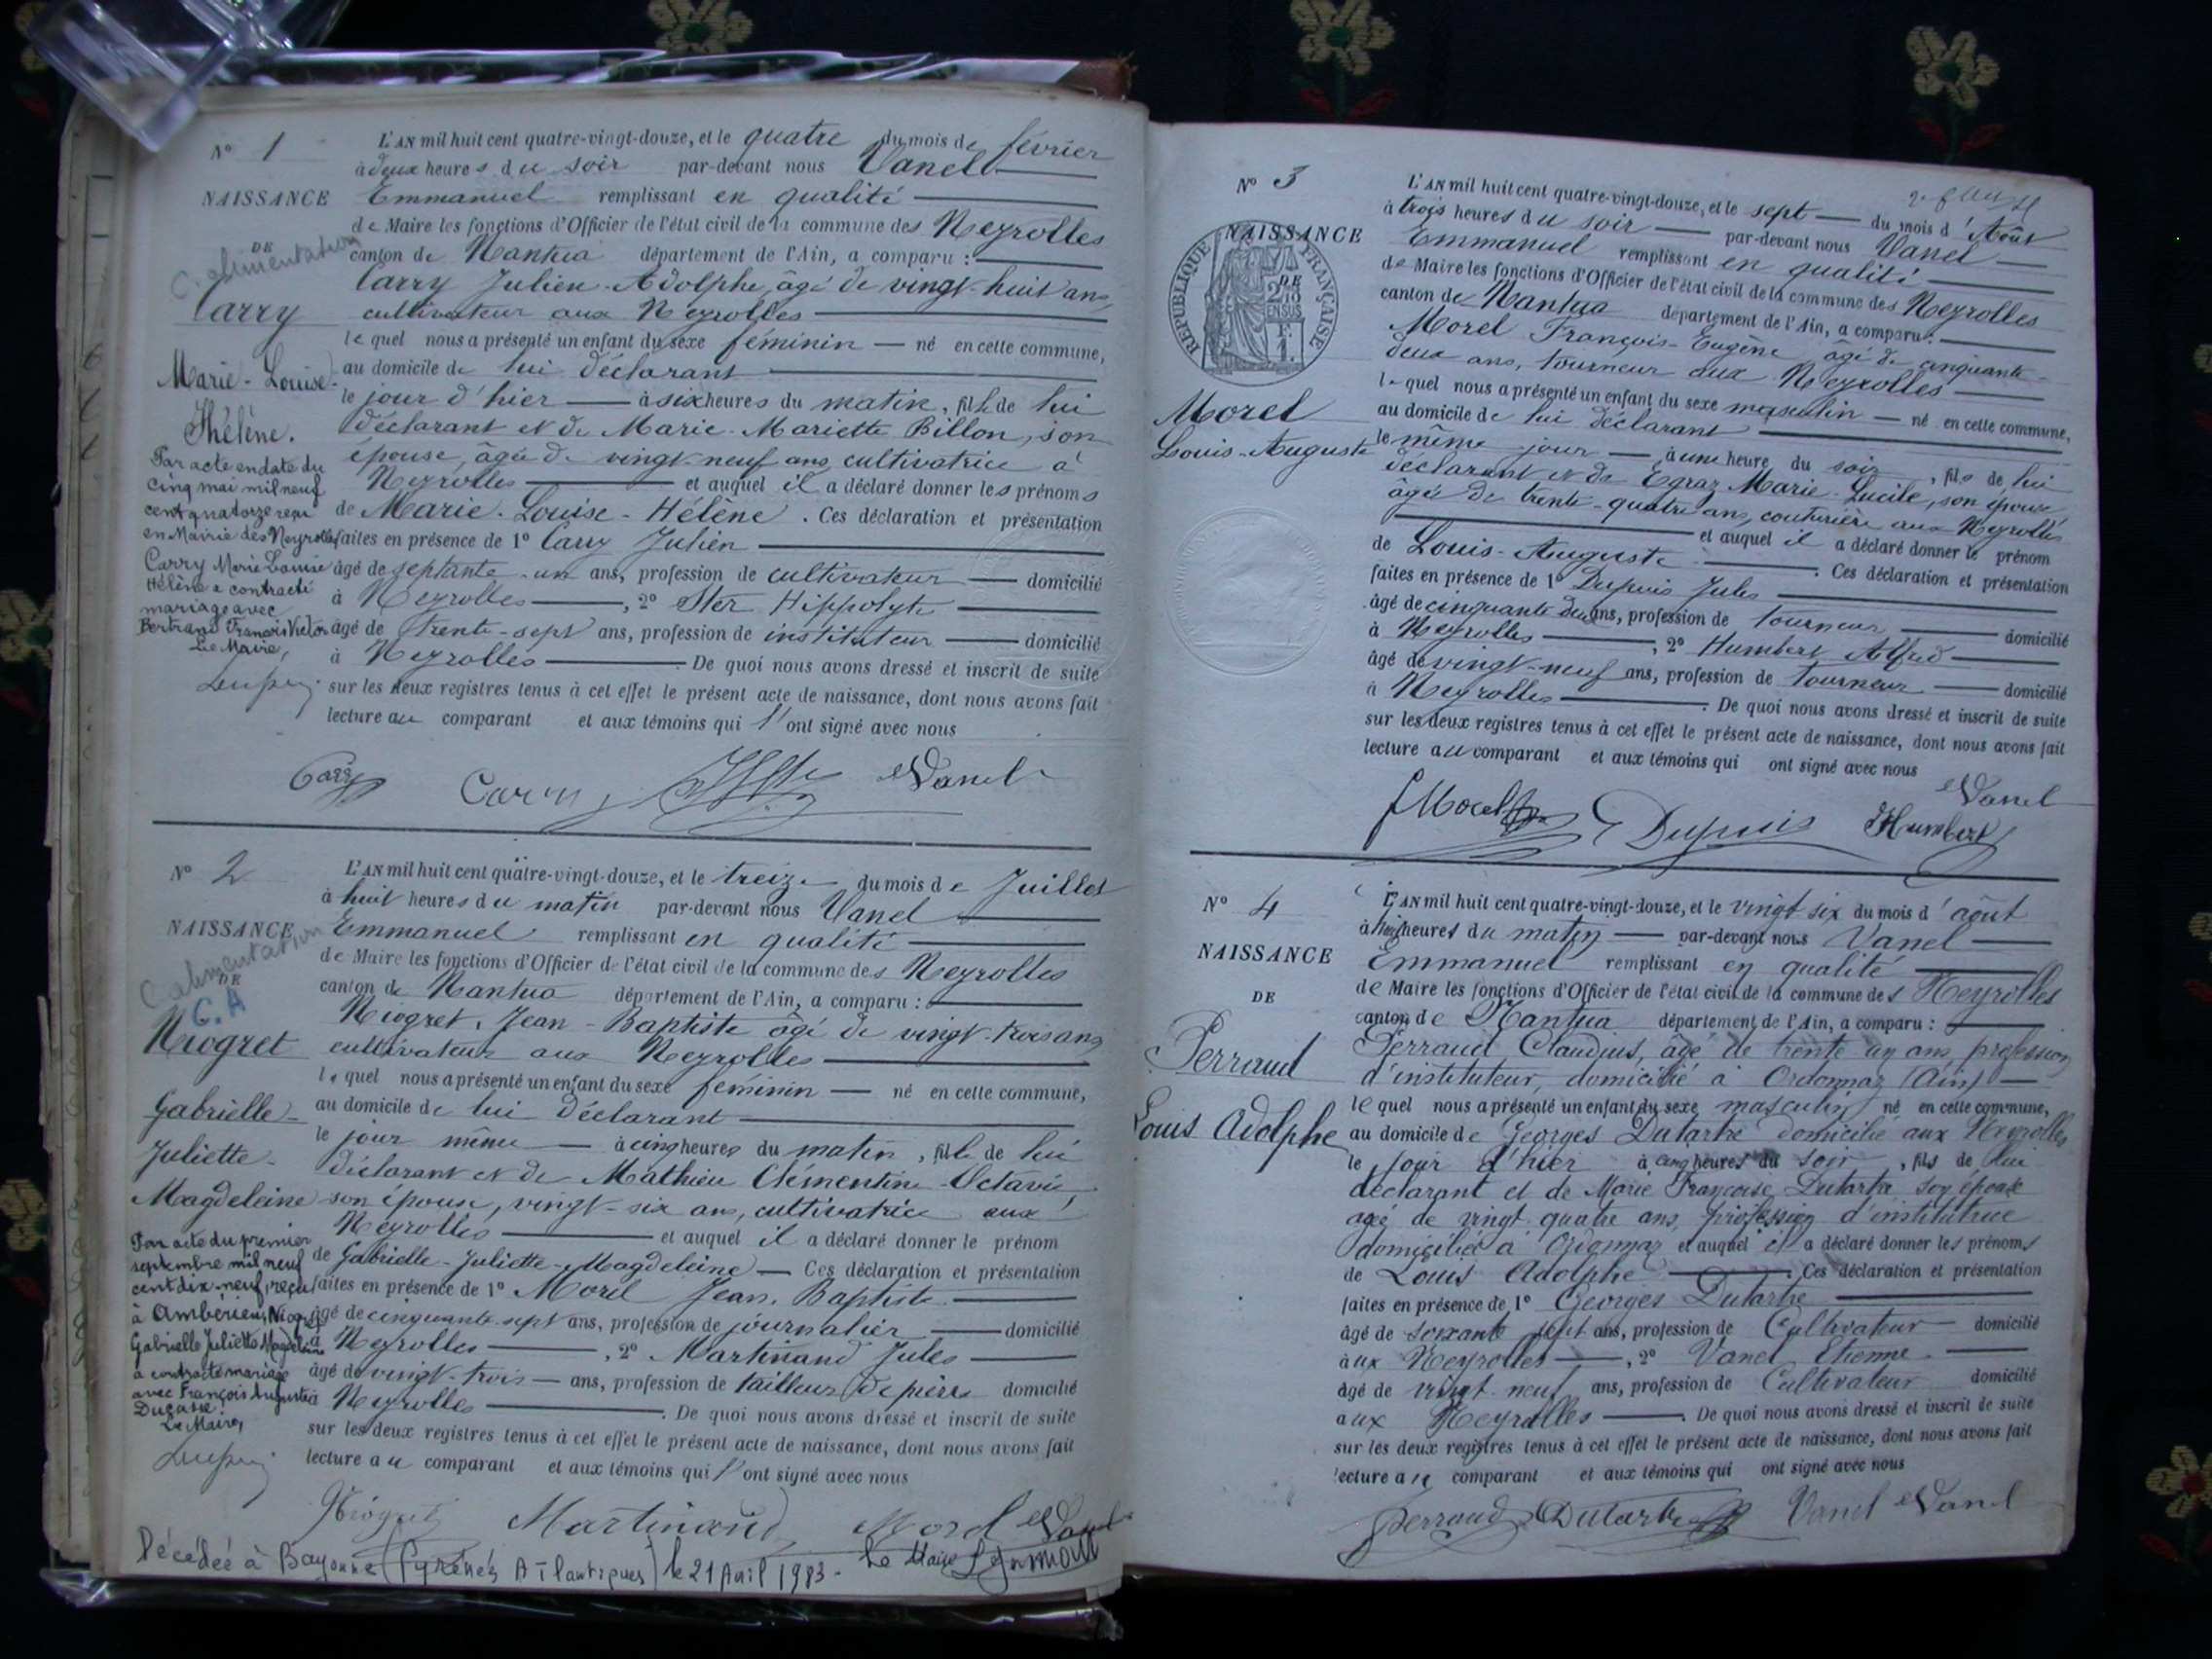 N° 1
NAISSANCE
DE
C. alimentation
Carry
Marie-Louise-
Hélène.
Par acte en date du
cinq mai mil neuf
cent quatorze reçu
en Mairie des Neyrolles
Carry Marie Louise
Hélène a contracté
mariage avec
Bertrand François Victor
Le Maire,
L'AN mil huit cent quatre-vingt-douze, et le quatre du mois de février
à deux heures du soir par-devant nous Vanel
Emmanuel remplissant en qualité
de Maire les fonctions d'Officier de l'état civil de la commune des Neyrolles
canton de Nantua département de l'Ain, a comparu :
Carry Julien-Adolphe, âgé de vingt-huit ans,
cultivateur aux Neyrolles
lequel nous a présenté un enfant du sexe féminin — né en cette commune,
au domicile de lui déclarant
le jour d'hier — à six heures du matin, fille de lui
déclarant et de Marie-Mariette Billon, son
épouse, âgée de vingt-neuf ans, cultivatrice à
Neyrolles — et auquel il a déclaré donner les prénoms
de Marie-Louise-Hélène. Ces déclaration et présentation
faites en présence de 1° Carry Julien
âgé de septante-un ans, profession de cultivateur — domicilié
à Neyrolles —, 2° Ster Hippolyte
âgé de trente-sept ans, profession de instituteur — domicilié
à Neyrolles — De quoi nous avons dressé et inscrit de suite
sur les deux registres tenus à cet effet le présent acte de naissance, dont nous avons fait
lecture au comparant et aux témoins qui l'ont signé avec nous
Carry Carry Vanel
N° 2
NAISSANCE
DE
C alimentation
C.A
Niogret
Gabrielle-
Juliette-
Magdeleine
Par acte du premier
septembre mil neuf
cent dix-neuf, reçu
à Ambérieu, Niogret
Gabrielle Juliette Magdeleine
a contracté mariage
avec François Auguste
Ducasse.
Le Maire,
L'AN mil huit cent quatre-vingt-douze, et le treize du mois de Juillet
à huit heures du matin par-devant nous Vanel
Emmanuel remplissant en qualité
de Maire les fonctions d'Officier de l'état civil de la commune des Neyrolles
canton de Nantua département de l'Ain, a comparu :
Niogret, Jean-Baptiste âgé de vingt-trois ans,
cultivateur aux Neyrolles
lequel nous a présenté un enfant du sexe féminin — né en cette commune,
au domicile de lui déclarant
le jour même — à cinq heures du matin, fille de lui
déclarant et de Mathieu Clémentine-Octavie,
son épouse, vingt-six ans, cultivatrice aux
Neyrolles — et auquel il a déclaré donner le prénom
de Gabrielle-Juliette-Magdeleine — Ces déclaration et présentation
faites en présence de 1° Morel Jean-Baptiste
âgé de cinquante-sept ans, profession de journalier — domicilié
à Neyrolles —, 2° Martinand Jules
âgé de vingt-trois — ans, profession de tailleur de pierre domicilié
à Neyrolles — De quoi nous avons dressé et inscrit de suite
sur les deux registres tenus à cet effet le présent acte de naissance, dont nous avons fait
lecture au comparant et aux témoins qui l'ont signé avec nous
Niogret Martinand Morel Vanel
Décédée à Bayonne (Pyrénées Atlantiques) le 21 Avril 1983- Le Maire
N° 3
NAISSANCE
DE
RÉPUBLIQUE FRANÇAISE
Morel
Louis-Auguste
L'AN mil huit cent quatre-vingt-douze, et le sept — du mois d'Août
à trois heures du soir — par-devant nous Vanel
Emmanuel remplissant en qualité
de Maire les fonctions d'Officier de l'état civil de la commune des Neyrolles
canton de Nantua département de l'Ain, a comparu :
Morel François-Eugène, âgé de cinquante-
deux ans, tourneur aux Neyrolles
lequel nous a présenté un enfant du sexe masculin — né en cette commune,
au domicile de lui déclarant
le même jour — à une heure du soir, fils de lui
déclarant et de Egraz Marie-Lucile, son épouse
âgée de trente-quatre ans, couturière aux Neyrolles
et auquel il a déclaré donner le prénom
de Louis-Auguste — Ces déclaration et présentation
faites en présence de 1° Dupuis Jules
âgé de cinquante deux ans, profession de tourneur — domicilié
à Neyrolles —, 2° Humbert Alfred
âgé de vingt-neuf ans, profession de tourneur — domicilié
à Neyrolles — De quoi nous avons dressé et inscrit de suite
sur les deux registres tenus à cet effet le présent acte de naissance, dont nous avons fait
lecture au comparant et aux témoins qui ont signé avec nous
Vanel
Morel Dupuis Humbert
N° 4
NAISSANCE
DE
Perraud
Louis Adolphe
L'AN mil huit cent quatre-vingt-douze, et le vingt six du mois d'août
à huit heures du matin — par-devant nous Vanel
Emmanuel remplissant en qualité
de Maire les fonctions d'Officier de l'état civil de la commune des Neyrolles
canton de Nantua département de l'Ain, a comparu :
Perraud Claudius, âgé de trente un ans, profession
d'instituteur, domicilié à Ordonnaz (Ain) —
lequel nous a présenté un enfant du sexe masculin né en cette commune,
au domicile de Georges Dutartre domicilié aux Neyrolles
le jour d'hier à cinq heures du soir, fils de lui
déclarant et de Marie Françoise Dutartre son épouse
agée de vingt quatre ans, profession d'institutrice
domiciliée à Ordonnaz et auquel il a déclaré donner les prénoms
de Louis Adolphe — Ces déclaration et présentation
faites en présence de 1° Georges Dutartre
âgé de soixante sept ans, profession de Cultivateur — domicilié
aux Neyrolles —, 2° Vanel Etienne
âgé de vingt neuf ans, profession de Cultivateur domicilié
aux Neyrolles — De quoi nous avons dressé et inscrit de suite
sur les deux registres tenus à cet effet le présent acte de naissance, dont nous avons fait
lecture au comparant et aux témoins qui ont signé avec nous
Perraud Dutartre Vanel Vanel